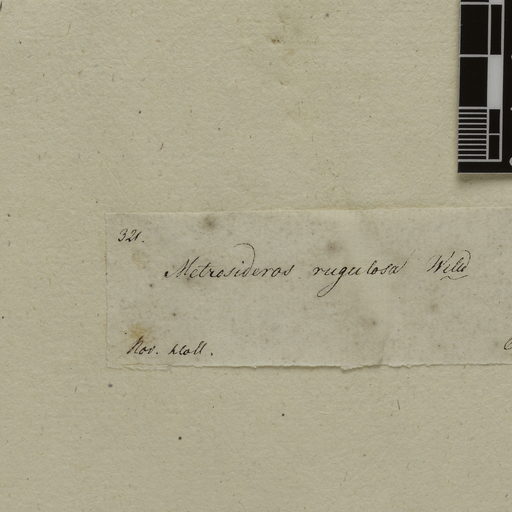 321.
Metrosideros rugulosa Willd
Nov. Holl.